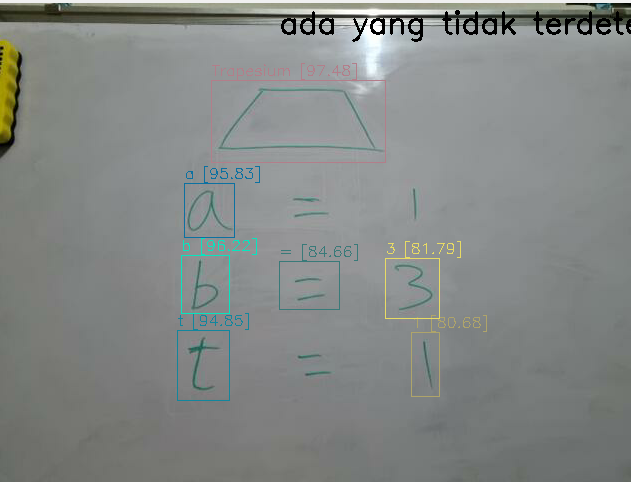 ada yang tidak terdete
Trapesium [97.48]
a [95.83]
a = 1
b [96.22] = [84.66] 3 [81.79]
b = 3
t [94.85] 1 [80.68]
t = 1